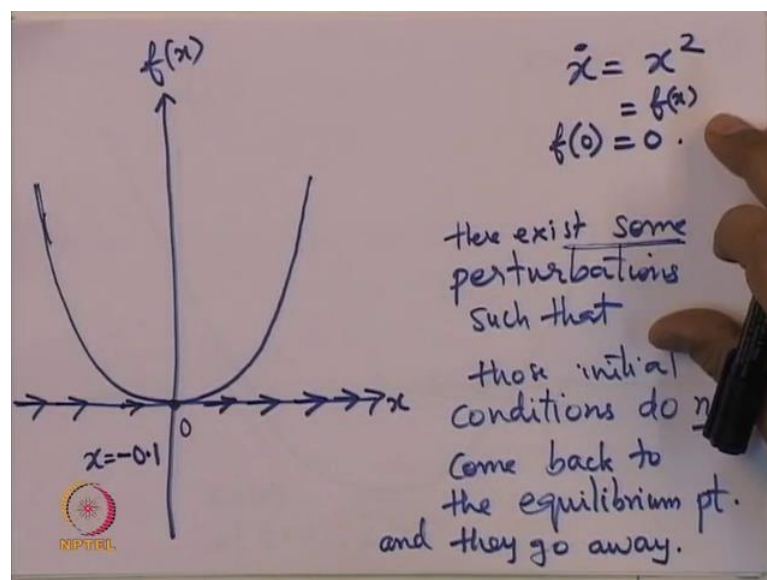 f(x)
ẋ = x²
= f(x)
f(0) = 0 .
there exist some
perturbations
such that
those initial
conditions do
come back to
the equilibrium pt.
and they go away.
x
0
x=-0.1
NPTEL